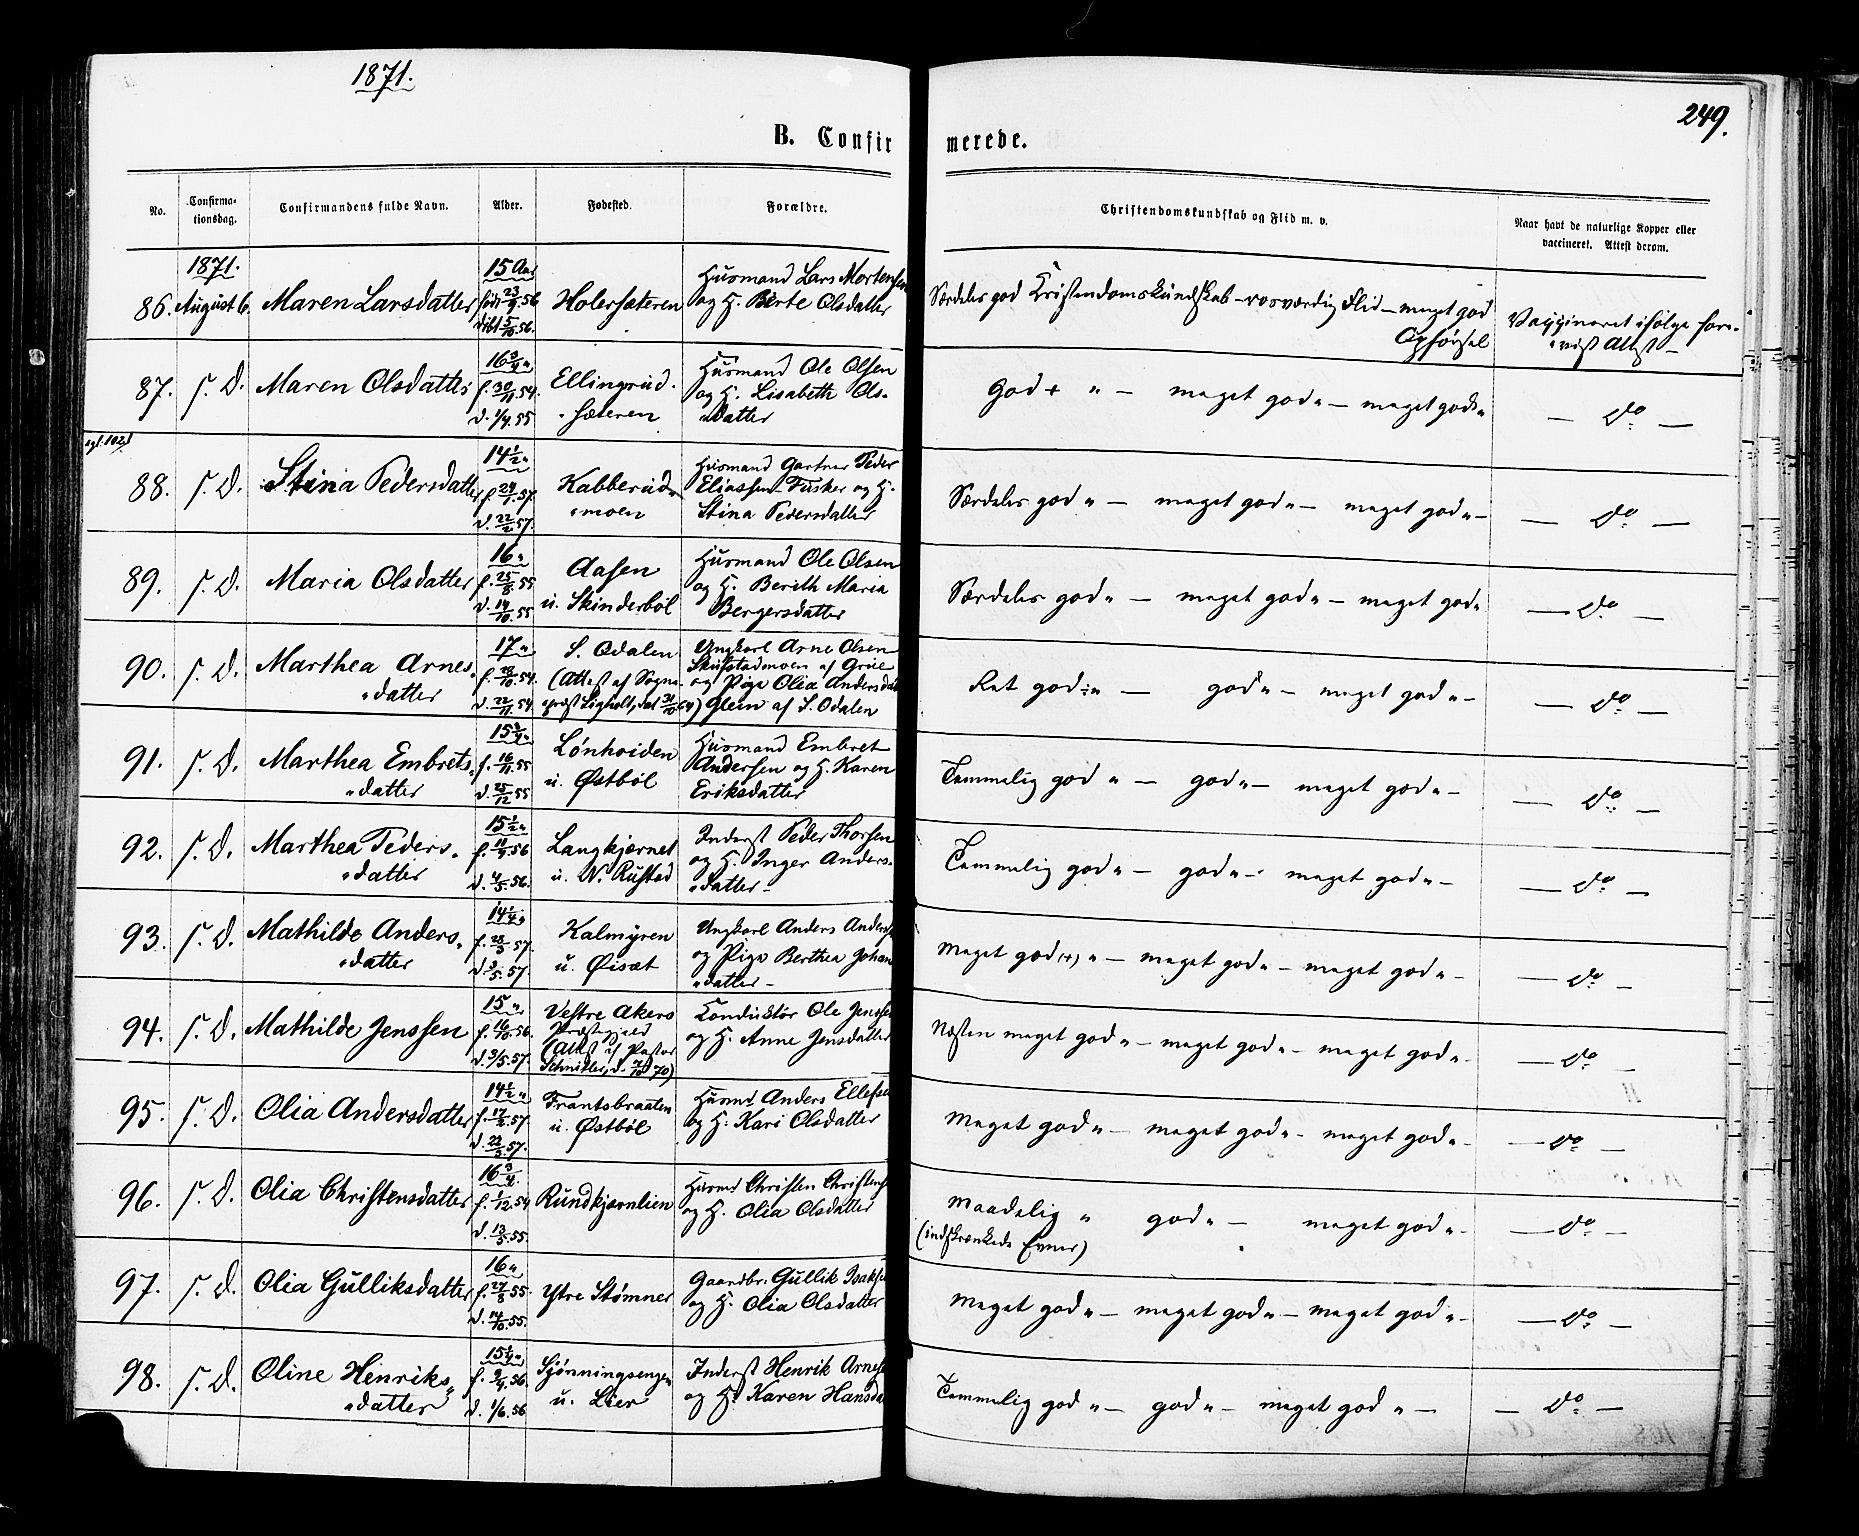 1871.
249.
B. Confirmerede.
No.
Confirma-
tionsdag.
Confirmandens fulde Navn.
Alder.
Fødested.
Forældre.
Christendomskundskab og Flid m. v.
Naar havt de naturlige Kopper eller
vaccineret. Attest derom.
1871.
86. August 6. Maren Larsdatter
15 Aar
født 23/9 56
døbt 5/10. 56.
Holersæteren
Husmand Lars Mortensen
og H. Berte Olsdatter
Særdeles god Kristendomskundskab – rosværdig Flid – meget god
Opførsel
Vaccineret ifølge fore-
vist Attest –
87. s. D. Maren Olsdatter
16 3/4 "
f. 30/11. 54.
d. 1/4. 55
Ellingrud-
sæteren
Husmand Ole Olsen
og H. Lisabeth Ols-
datter
God + " – meget god " – meget god "
— Do —
88. s. D. Stina Pedersdatter
14 1/2 "
f. 24/1. 57.
d. 22/2 57.
Kabberud-
moen
Husmand Gartner Peder
Eliassen Fusker og H.
Stina Pedersdatter
Særdeles god " – meget god " – meget god " –
— Do —
89. s. D. Maria Olsdatter
16 "
f. 25/8. 55
d. 14/10. 55
Aasen
u. Skinderböl
Husmand Ole Olsen
og H. Berith Maria
Bergersdatter
Særdeles god " – meget god " – meget god "
— Do —
90. s. D. Marthea Arnes-
datter
17 "
d. 22/11. 54
S. Odalen
(Attest af Sogne-
præst
Ungkarl Arne Olsen
Skulstadmoen af Grue
og Pige Olia Andersdat
Glein af S. Odalen
Ret god ÷ " — god " – meget god " –
— Do —
91. s. D. Marthea Embrets-
datter
15 3/4 "
f. 16/11. 55
d. 25/12 55
Lønhoiden
u. Østböl
Husmand Embret
Andersen og H. Karen
Eriksdatter
Temmelig god " – god " – meget god " –
— Do —
92. s. D. Marthea Peders-
datter
15 1/2 "
d. 4/5. 56.
Langkjærnet
u. N. Rustad
Inderst Peder Thorsen
og H. Inger Anders-
datter –
Temmelig god " – god " – meget god " –
— Do —
93. s. D. Mathilde Anders-
datter
14 1/4 "
f. 28/3 57.
d. 3/5. 57.
Kalmyren
u. Øisæt
Ungkarl Anders Anders
og Pige Berthea Johan
datter –
Meget god (+) " – meget god " – meget god " –
— Do —
94. s. D. Mathilde Jenssen
15 "
f. 16/10. 56.
d. 3/5. 57.
Vestre Akers
Præstegjeld
(Attest af Pastor
Schnitler, d. 70)
Konduktør Ole Jenssen
og H. Anne Jensdatter
Næsten meget god " – meget god " – meget god " –
— Do —
95. s. D. Olia Andersdatter
14 1/2 "
f. 17/2. 57.
d. 22/3. 57.
Frantsbraaten
u. Østböl
Husmd Anders Ellefsen
og H. Kari Olsdatter
Meget god " – meget god " – meget god " –
— Do —
96. s. D. Olia Christensdatter
16 3/4
f. 1/12. 54
d. 13/5. 55.
Rundkjærnlien
Husmd Christen Christens
og H. Olia Olsdatter
Maadelig " god " – meget god " –
(indskrænkede Evner)
— Do —
97. s. D. Olia Gulliksdatter
16 "
f. 27/8 55.
d. 14/10. 55.
Ytre Stømner
Gaardbr. Gullik Isaks
og H. Olia Olsdatter
Meget god " – meget god " – meget god " –
— Do —
98. s. D. Oline Henriks-
datter
15 1/4 "
f. 9/4. 56.
d. 1/6. 56
Sjønningsengen
u. Lier
Inderst Henrik Arnesen
og H. Karen Hansda
Temmelig god " – god " – meget god " –
— Do —